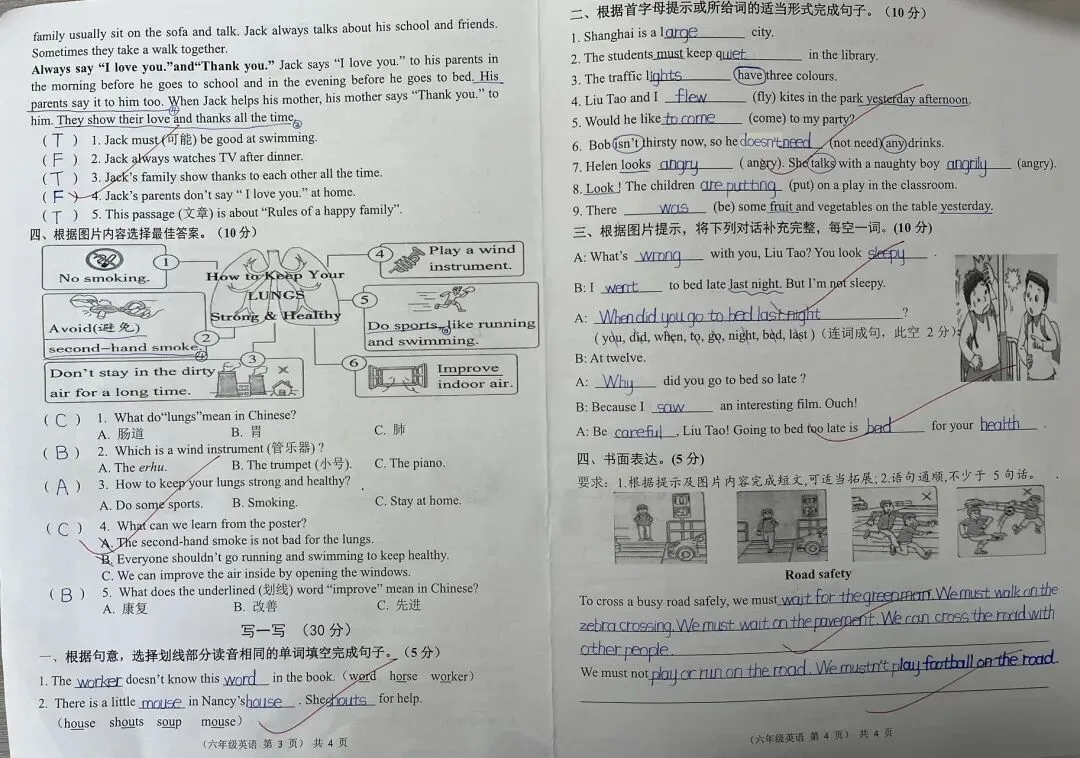 family usually sit on the sofa and talk. Jack always talks about his school and friends.
Sometimes they take a walk together.
Always say “I love you.”and“Thank you.” Jack says “I love you.” to his parents in
the morning before he goes to school and in the evening before he goes to bed. His
parents say it to him too. When Jack helps his mother, his mother says “Thank you.” to
him. They show their love and thanks all the time.
( T ) 1. Jack must (可能) be good at swimming.
( F ) 2. Jack always watches TV after dinner.
( T ) 3. Jack’s family show thanks to each other all the time.
( F ) 4. Jack’s parents don’t say “ I love you.” at home.
( T ) 5. This passage (文章) is about “Rules of a happy family”.
四、根据图片内容选择最佳答案。（10 分）
No smoking.
1
How to Keep Your
LUNGS
Strong & Healthy
4
Play a wind
instrument.
Avoid(避免)
second-hand smoke.
2
5
Do sports, like running
and swimming.
Don’t stay in the dirty
air for a long time.
3
6
Improve
indoor air.
( C ) 1. What do“lungs”mean in Chinese?
A. 肠道 B. 胃 C. 肺
( B ) 2. Which is a wind instrument (管乐器) ?
A. The erhu. B. The trumpet (小号). C. The piano.
( A ) 3. How to keep your lungs strong and healthy?
A. Do some sports. B. Smoking. C. Stay at home.
( C ) 4. What can we learn from the poster?
A. The second-hand smoke is not bad for the lungs.
B. Everyone shouldn’t go running and swimming to keep healthy.
C. We can improve the air inside by opening the windows.
( B ) 5. What does the underlined (划线) word “improve” mean in Chinese?
A. 康复 B. 改善 C. 先进
写一写 （30 分）
一、根据句意，选择划线部分读音相同的单词填空完成句子。（5 分）
1. The worker doesn’t know this word in the book. (word horse worker)
2. There is a little mouse in Nancy’s house . She shouts for help.
(house shouts soup mouse)
（六年级英语 第 3 页） 共 4 页
二、根据首字母提示或所给词的适当形式完成句子。（10 分）
1. Shanghai is a large city.
2. The students must keep quiet in the library.
3. The traffic lights (have) three colours.
4. Liu Tao and I flew (fly) kites in the park yesterday afternoon.
5. Would he like to come (come) to my party?
6. Bob isn’t thirsty now, so he doesn't need (not need) any drinks.
7. Helen looks angry ( angry). She talks with a naughty boy angrily (angry).
8. Look ! The children are putting (put) on a play in the classroom.
9. There was (be) some fruit and vegetables on the table yesterday.
三、根据图片提示，将下列对话补充完整，每空一词。(10 分)
A: What’s wrong with you, Liu Tao? You look sleepy .
B: I went to bed late last night. But I’m not sleepy.
A: When did you go to bed last night ?
( you, did, when, to, go, night, bed, last )（连词成句，此空 2 分）
B: At twelve.
A: Why did you go to bed so late ?
B: Because I saw an interesting film. Ouch!
A: Be careful , Liu Tao! Going to bed too late is bad for your health .
四、书面表达。(5 分)
要求：1.根据提示及图片内容完成短文,可适当拓展; 2.语句通顺,不少于 5 句话。
Road safety
To cross a busy road safely, we must wait for the green man. We must walk on the
zebra crossing. We must wait on the pavement. We can cross the road with
other people.
We must not play or run on the road. We mustn't play football on the road.
（六年级英语 第 4 页） 共 4 页